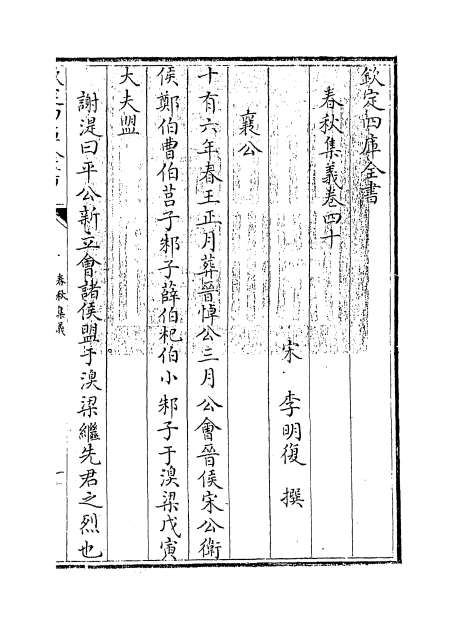 欽定四庫全書
春秋集義卷四十
宋 李明復 撰
襄公
十有六年春王正月葬晉悼公三月公會晉侯宋公衛
侯鄭伯曹伯莒子邾子薛伯杞伯小邾子于湨梁戊寅
大夫盟
謝湜曰平公新立會諸侯盟于湨梁繼先君之烈也
春秋集義
一